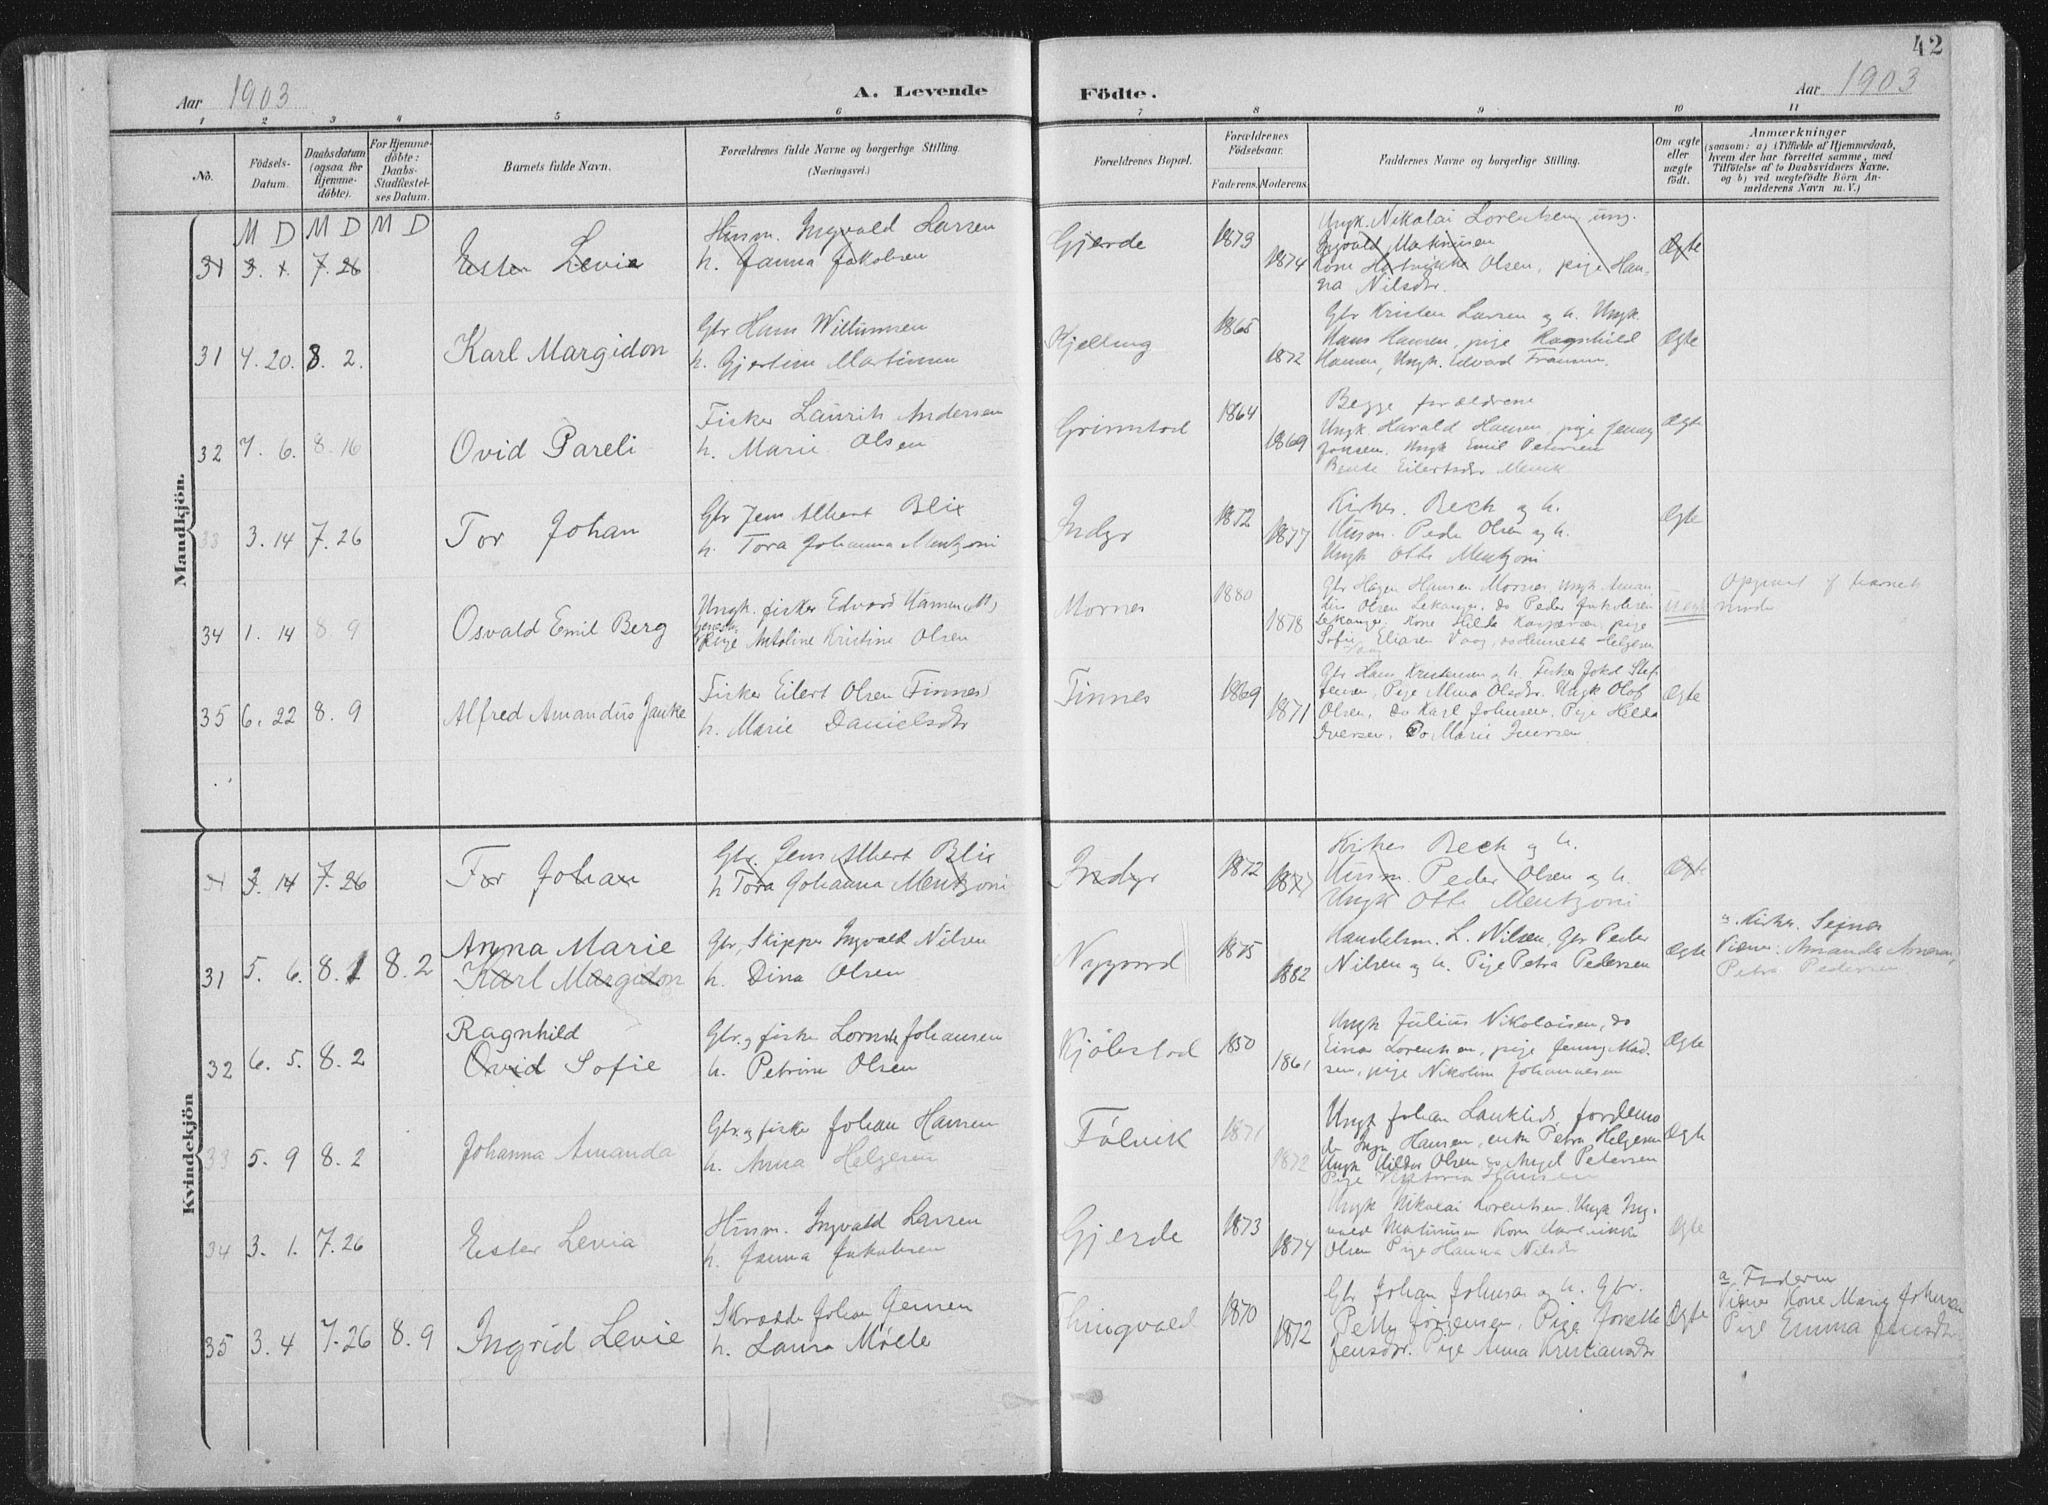 42
Aar 1903
A. Levende
Födte.
Aar 1903
1 2 3 4 5 6 7 8 9 10 11
No.
Födsels-
Datum.
Daabsdatum
(ogsaa for
Hjemme-
döbte).
For Hjemme-
döbte:
Daabs-
Stadfæstel-
ses Datum.
Barnets fulde Navn.
Forældrenes fulde Navne og borgerlige Stilling.
(Næringsvei.)
Forældrenes Bopæl.
Forældrenes
Födselsaar.
Faderens. Moderens.
Faddernes Navne og borgerlige Stilling.
Om ægte
eller
uægte
födt.
Anmærkninger
(saasom: a) i Tilfælde af Hjemmedaab,
hvem der har forrettet samme, med
Tilföielse af to Daabsvidners Navne.
og b) ved uægtefödte Börn An-
melderens Navn m. V.)
M D M D M D
Mandkjön.
31 3. 1 7. 26
Ester Levie
Husm. Ingvald Larsen
h. Janna Jakobsen
Gjerde
1873
1874
Ungk. Nikolai Lorentsen, ung.
Ingvald Matinusen
Kone Olsen, pige Han-
na Nilsdtr.
Ægte
31 4. 20. 8. 2.
Karl Margidon
Gbr Hans Willumsen
h. Gjertine Martinsen
Kjelling
1865
1872
Gbr Kristen Larsen og h. Ungk.
Hans Hansen, pige Ragnhild
Hansen, Ungk. Edvard Fransen.
Ægte
32 7. 6. 8. 16
Ovid Pareli
Fisker Laurits Andersen
h. Marie Olsen
Grimstad
1864
1869
Begge forældrene
Ungk. Harald Hansen, pige Jenny
Jensen. Ungk Emil Petersen
Bente Eilertsdtr
Ægte
33 3. 14 7. 26
Tor Johan
Gbr Jens Albert Blix
h. Tora Johanna Mentzoni
Indyr
1872
1877
Kirkes. Bech og h.
Husm. Peder Olsen og h.
Ungk Otto Mentzoni
Ægte
34 1. 14 8 9
Osvald Emil Berg
Ungk. fisker Edvard Hansen
Pige Antoline Kristine Olsen
Mornes
1880
1878
Gbr Hagen Hansen Mornes Ungk Aman-
dus Olsen Lekanger, do Peder
Lekanger. Kone Hilda pige
Sofie Eliasen Vaag, Helgesen
Uægte
Opgivet af barnets
moder
35 6. 22 8. 9
Alfred Amandus Janke
Fisker Eilert Olsen (Finnes)
h. Marie Danielsdtr
Finnes
1869
1871
Gbr Hans Kristensen og h. Fisker Stef-
fensen, Pige Alma Olsdtr. Ungk Olof
Olsen, do Karl Johnsen, Pige Hilda
Iversen, Do Marie Iversen
Ægte
Kvindekjön
31 3. 14 7. 26
Tor Johan
Gbr. Jens Albert Blix
h Tora Johanna Mentzoni
Indyr
1872
1877
Kirkes Bech og h.
Husm. Peder Olsen og h.
Ungk Otto Mentzoni
Ægte
31 5. 6. 8. 1 8. 2
Anna Marie
Karl Margidon
Gbr, Skipper Ingvald Nilsen
h. Dina Olsen
Nygaard
1875
1882
Handelsm. L. Nilsen, Gbr Peder
Nilsen og h. Pige Petra Pedersen
Ægte
a. Kirkes. Sejnæs
Vidner: Amanda Arnesen,
Petra Pedersen
32 6. 5. 8. 2
Ragnhild
Ovid Sofie
Gbr. og fisker Lorents Johansen
h. Petrine Olsen
Kjölestad
1850
1861
Ungk Julius Nikolaisen, do
Einar Lorentsen, pige Jenny Mad-
sen, pige Nikoline Johannesen
Ægte
33 5. 9 8. 2
Johanna Amanda
Gbr. og fisker Johan Hansen
h. Anna Helgesen
Følvik
1871
1872
Ungk Johan Lauklid, jordemo
der Hansen, enke Petra Helgesen
Ungk Hildor Olsen do Angel Petersen
Pige Viktoria Hansen
Ægte
34 3. 1. 7. 26
Ester Levia
Husm. Ingvald Larsen
h. Janna Jakobsen
Gjerde
1873
1874
Ungk Nikolai Lorentsen. Ungk Ing-
vald Matinusen Kone
Olsen Pige Hanna Nilsdtr
Ægte
35 3. 4 7. 26 8. 9
Ingrid Levie
Skrædder Johan Jensen
h. Laura Mölle
Thingvold
1870
1872
Gbr Johan Johnsen og h. Gbr.
Petter Jörgensen, Pige Jonette
Jensdtr. Pige Anna Kristiansdtr
Ægte
a Faderen
Vidner Kone Marie Johnsen
Pige Emma Jensdtr